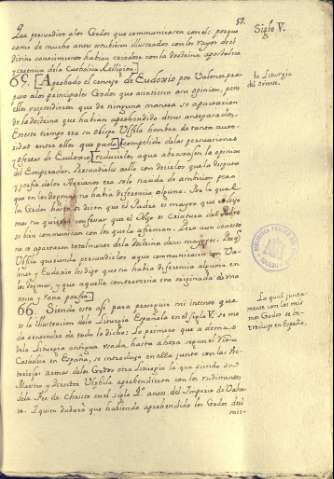 52.
Siglo V.
persuadio a los Godos que communicaran con el: porque
como de mucho aver estubiesen illustrados con los rayos del
divino conocimiento havian con la doctrina apostolica
de la Catholica Religion.
65. Aprobado el consejo de Eudoxio por Valente,
a los principales Godos que anviesen a su opinion, pero
ellos respondieron que de ninguna manera se apartarian
de la doctrina que habian aprehendido de sus antepasados.
En este tiempo era su Obispo Ulfila hombre de tanta auto-
ridad entre ellos que
y ofertas de Eudoxio, reduxolos, a que abrazasen la opinion
del Emperador. Persuadiolo esto con decirles que la disputa
y porfia de los Arrianos era solo nacida de ambicion pero
que en los dogmas no habia diferencia alguna. Por lo qual
los Godos hasta oy dicen que el Padre es mayor que el Hijo
mas no quieren confesar que el Hijo es Criatura del Padre
si bien communican con los que lo afirman. Pero aun con esto
no se apartaron totalmente de la doctrina de sus mayores.
Ulfila queriendo persuadirlos a que communicaran con Va-
lente y Eudoxio les dijo que no habia diferencia alguna en
los dogmas, y que aquella controversia era originada de
y vana porfia.
66. Siendo esto assi para proseguir mi intento que
es la illustracion de la Liturgia Española en el siglo V.
de todo lo dicho: Lo primero que a demas
de la Liturgia antigua usada, hasta ahora
Catholica en España, se introduxo en ella junto con las
armas de los Godos otra Liturgia la que siendo su
Maestro y director Ulphila aprehendieron con los rudimentos
de la Fee de Christo en el siglo 4.º años del Imperio de Vale
te. I quien dudara que habiendo aprehendido los Godos del
la Liturgia
La qual junta-
mente con los mis
mos Godos se in-
troduxo en España.